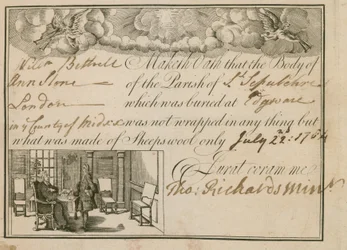 Maketh Oath that the Body of
Ann Stone of the Parish of St Sepulchres
London which was buried at Edgware
in ye County of Middx was not wrapped in any thing but
what was made of Sheeps wool only July 22: 17
Jurat coram me
Tho: Richards Minr